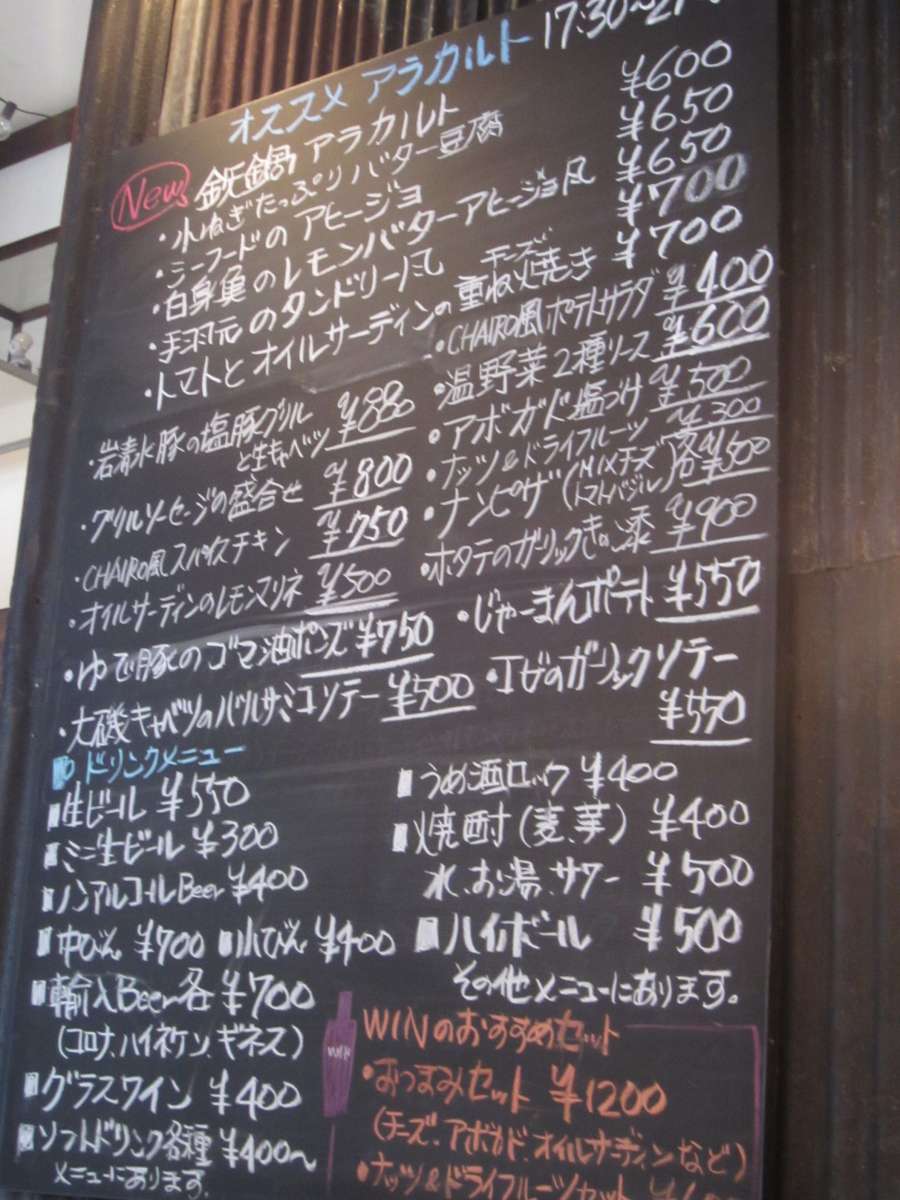 オススメ アラカルト 17:30~21
New 鉄鍋 アラカルト
・小ねぎたっぷりバター豆腐 ¥600
・シーフードのアヒージョ ¥650
・白身魚のレモンバターアヒージョ風 ¥650
・手羽元のタンドリー風 ¥700
・トマトとオイルサーディンのチーズ重ね焼き ¥700
・岩清水豚の塩豚グリル
と生キャベツ ¥880
・グリルソーセージの盛合せ ¥800
・CHAIRO風スパイスチキン ¥750
・オイルサーディンのレモンマリネ ¥500
・ゆで豚のゴマ油ポンズ ¥750
・大磯キャベツのバルサミコソテー ¥500
・CHAIRO風ポテトサラダ ¥400
・温野菜2種ソース ¥600
・アボガド塩づけ ¥500
・ナッツ&ドライフルーツ ¥300
・ナンピザ(MIXチーズ トマトバジル)各¥500
・ホタテのガーリックきのこ添 ¥900
・じゃーまんポテト ¥550
・エビのガーリックソテー
¥550
ドリンクメニュー
生ビール ¥550
ミニ生ビール ¥300
ノンアルコールBeer ¥400
中びん ¥700 小びん ¥400
輸入Beer各 ¥700
(コロナ、ハイネケン、ギネス)
グラスワイン ¥400
ソフトドリンク各種 ¥400~
メニューにあります。
うめ酒ロック ¥400
焼酎(麦、芋) ¥400
水、お湯、サワー ¥500
ハイボール ¥500
その他メニューにあります。
WINのおすすめセット
・おつまみセット ¥1200
(チーズ、アボカド、オイルサーディンなど)
・ナッツ&ドライフルーツセット